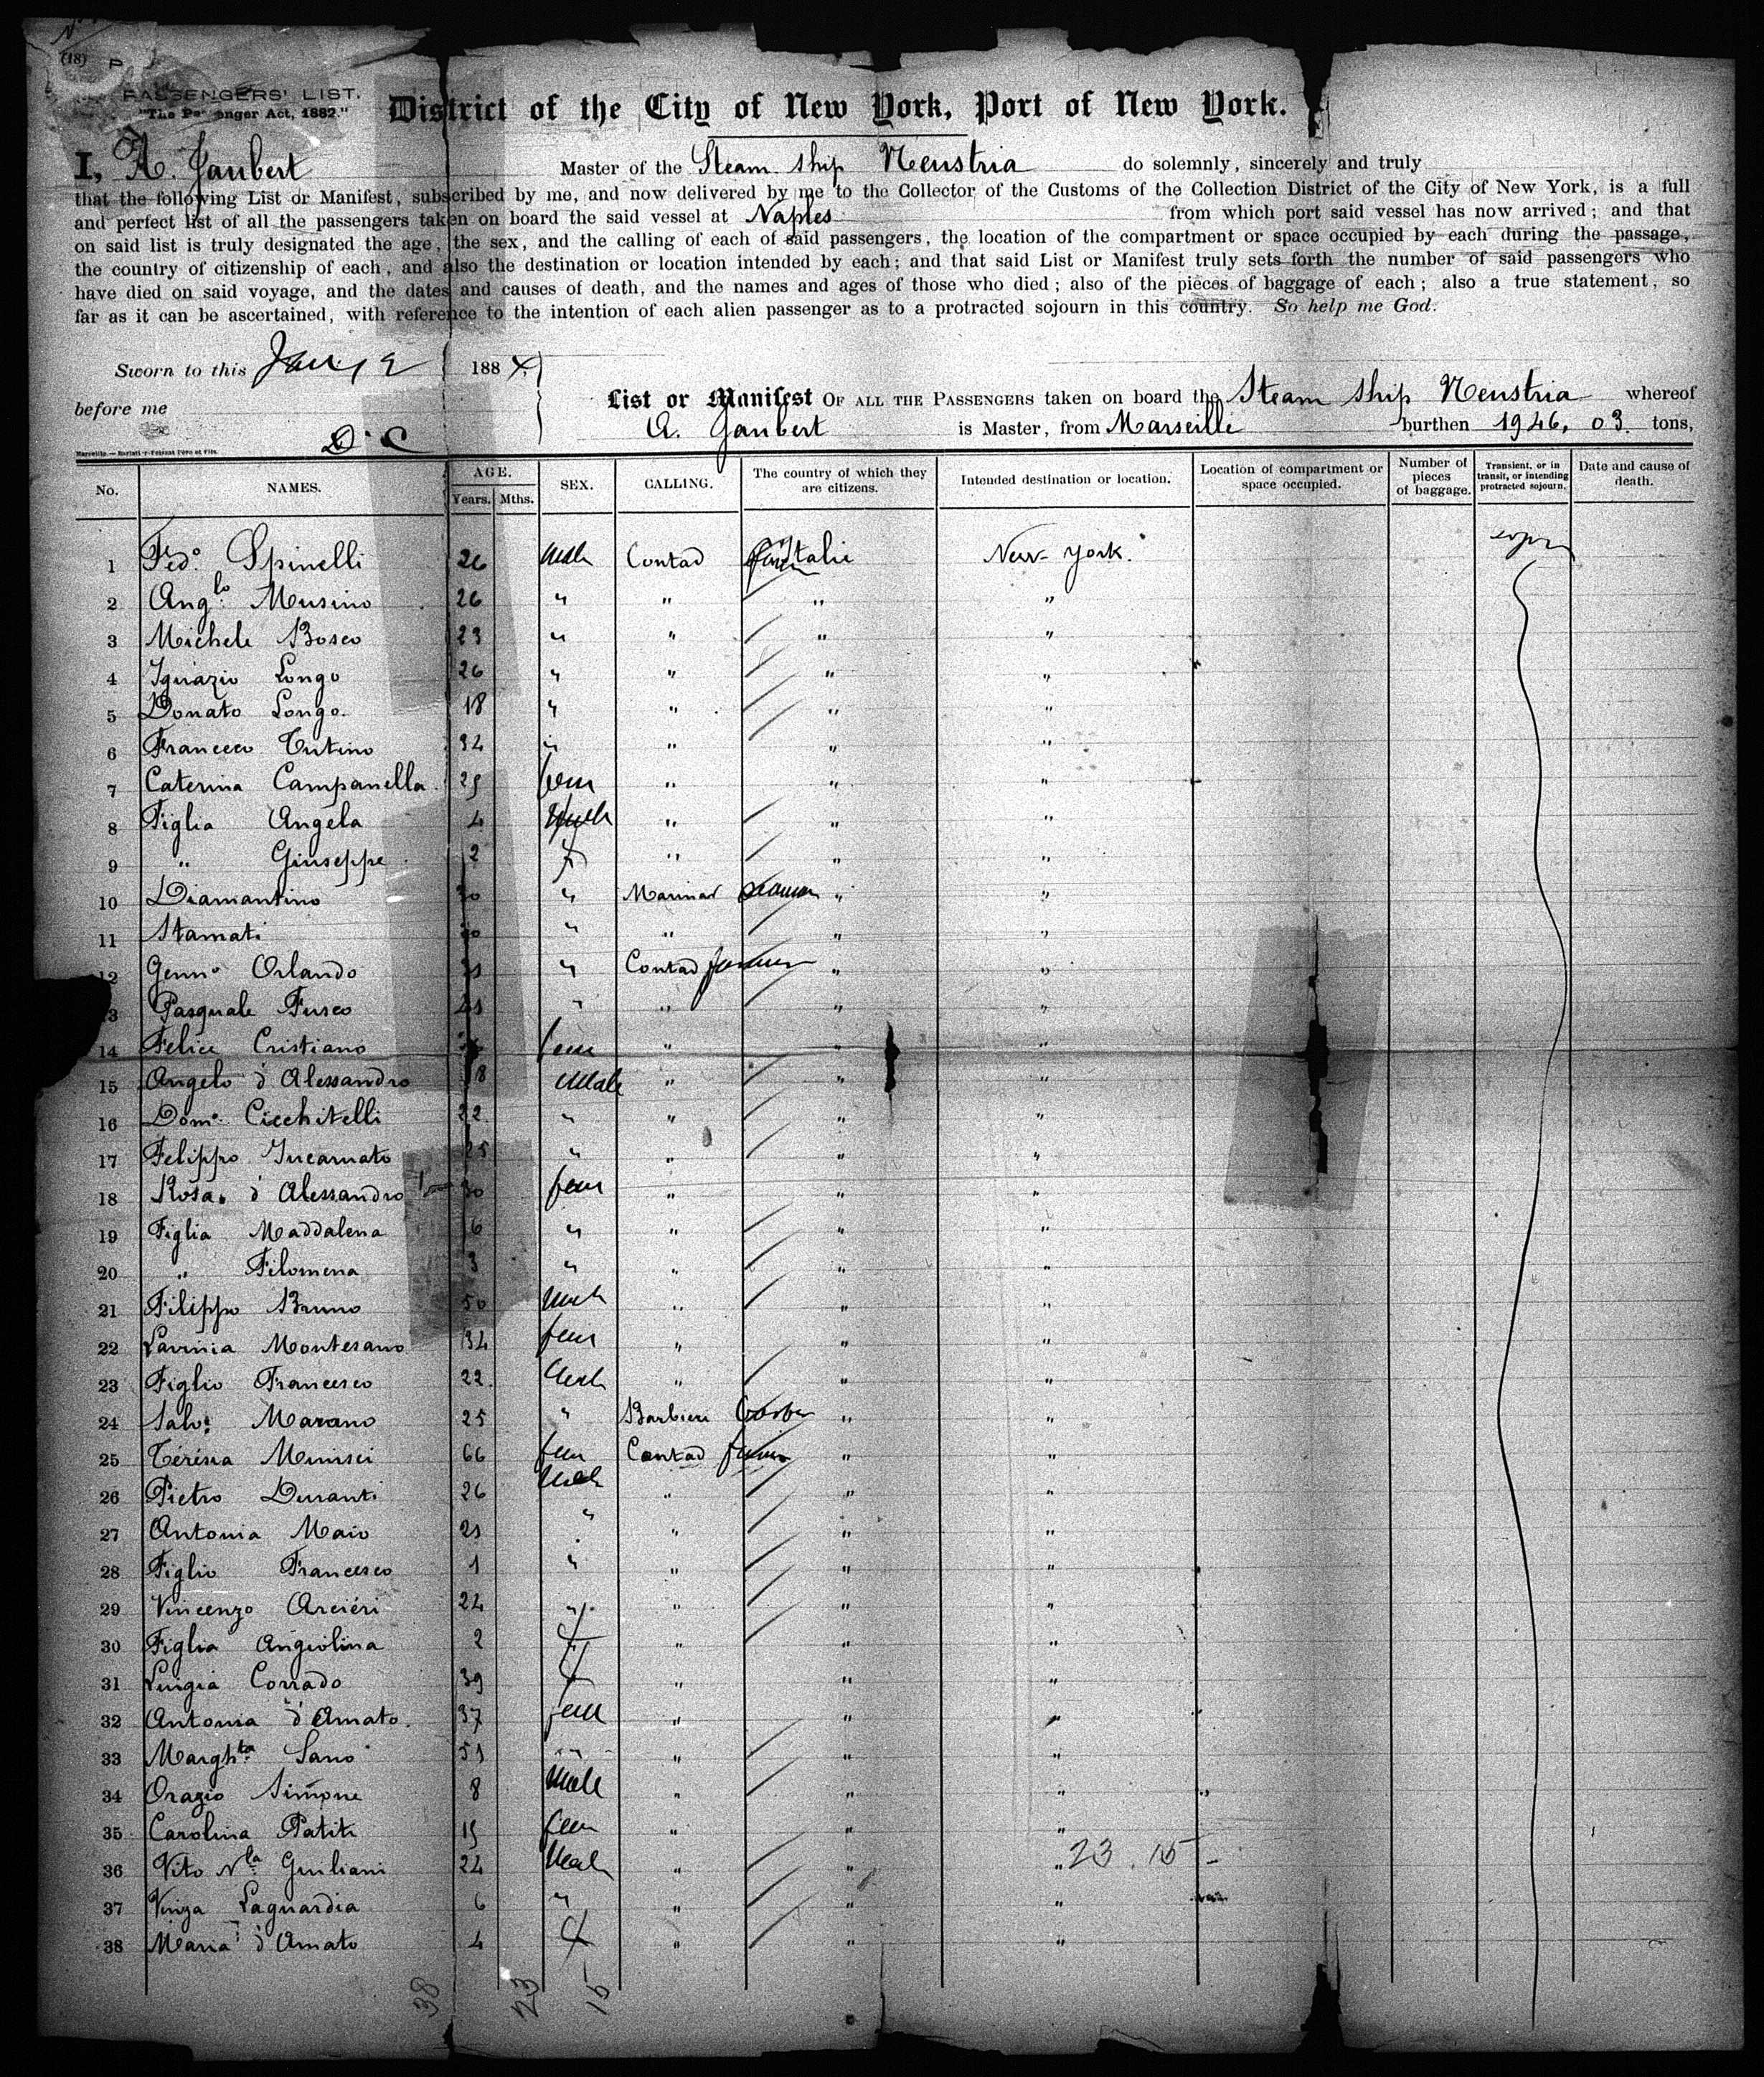 (18)
PASSENGERS' LIST.
"The Pa enger Act, 1882."
District of the City of New York, Port of New York.
I, A. Jaubert Master of the Steam ship Neustria do solemnly, sincerely and truly
that the following List or Manifest, subscribed by me, and now delivered by me to the Collector of the Customs of the Collection District of the City of New York, is a full
and perfect list of all the passengers taken on board the said vessel at Naples from which port said vessel has now arrived; and that
on said list is truly designated the age, the sex, and the calling of each of said passengers, the location of the compartment or space occupied by each during the passage,
the country of citizenship of each, and also the destination or location intended by each; and that said List or Manifest truly sets forth the number of said passengers who
have died on said voyage, and the dates and causes of death, and the names and ages of those who died; also of the pieces of baggage of each; also a true statement, so
far as it can be ascertained, with reference to the intention of each alien passenger as to a protracted sojourn in this country. So help me God.
Sworn to this Jany 2 1884
before me
List or Manifest OF ALL THE PASSENGERS taken on board the Steam ship Neustria whereof
A. Jaubert is Master, from Marseille burthen 1946, 03. tons,
No. NAMES. AGE. Years. Mths. SEX. CALLING. The country of which they are citizens. Intended destination or location. Location of compartment or space occupied. Number of pieces of baggage. Transient, or in transit, or intending protracted sojourn. Date and cause of death.
1 Fedo. Spinelli 26 Male Contad Italie New-York.
2 Anglo. Musino 26 " " " "
3 Michele Bosco 23 " " " "
4 Ignazio Longo 26 " " " "
5 Donato Longo. 18 " " " "
6 Francesco Tutino 34 " " " "
7 Caterina Campanella 25 fem " " "
8 Figlia Angela 4 " " "
9 " Giuseppe 2 " " "
10 Diamantino 30 " Marinar Seaman " "
11 Stamati " " " "
12 Genno Orlando " Contad " "
13 Pasquale Fusco " " " "
14 Felice Cristiano fem " " "
15 Angelo d'Alessandro 18 Male " " "
16 Domo. Cicchitelli 22 " " " "
17 Felippo Incarnato 25 " " " "
18 Rosa d'Alessandro 30 fem " " "
19 Figlia Maddalena 6 " " " "
20 " Filomena 3 " " " "
21 Filippo Bruno 50 Male " " "
22 Lavinia Montesano 34 fem " " "
23 Figlio Francesco 22 Male " " "
24 Salve. Marano 25 " Barbieri Barber " "
25 Térésia Minisci 66 fem Contad " "
26 Pietro Duranti 26 Male " " "
27 Antonia Maio 21 " " " "
28 Figlio Francesco 1 " " " "
29 Vincenzo Arciéri 24 " " " "
30 Figlia Angiolina 2 f " " "
31 Luigia Corrado 39 f " " "
32 Antonia d'Amato. 37 fem " " "
33 Marghta. Sano 51 " " " "
34 Orazio Simone 8 Male " " "
35 Carolina Patiti 15 fem " " "
36 Vito Nla. Giuliani 24 Male " " " 23. 15
37 Vinza Laguardia 6 " " " "
38 Maria d'Amato 4 f " " "
38 23 15